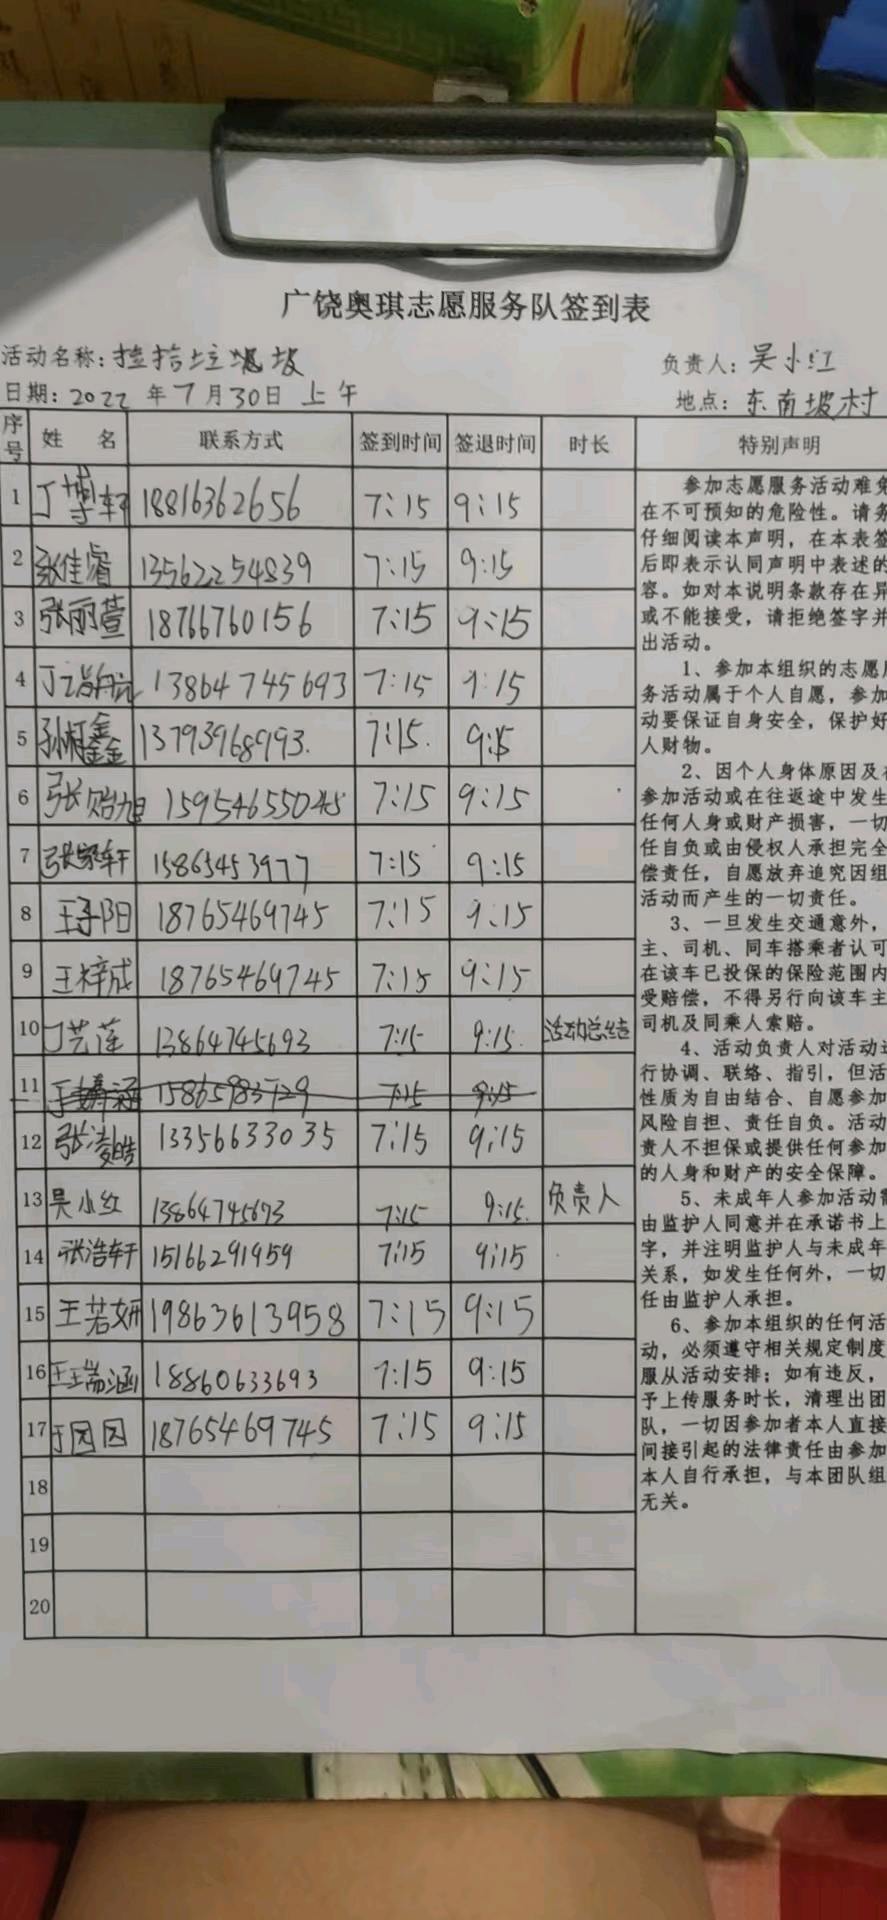 广饶奥琪志愿服务队签到表
活动名称：捡拾垃圾 负责人：吴小红
日期：2022年7月30日上午 地点：东南坡村
序号 姓名 联系方式 签到时间 签退时间 时长 特别声明
1 丁博轩 18816362656 7:15 9:15
2 张佳睿 13562254839 7:15 9:15
3 张丽萱 18766760156 7:15 9:15
4 13864745693 7:15 9:15
5 孙 鑫 13793968993. 7:15. 9:15
6 张贻旭 15954655045 7:15 9:15
7 张家轩 15865453977 7:15 9:15
8 王子阳 18765469745 7:15 9:15
9 王梓成 18765469745 7:15 9:15
10 丁艺莲 13864745693 7:15 9:15. 活动总结
11 涵 7:15 9:15
12 张凌皓 13356633035 7:15 9:15
13 吴小红 13864745693 7:15 9:15. 负责人
14 张浩轩 15166291959 7:15 9:15
15 王若妍 19863613958 7:15 9:15
16 王瑞涵 18860633693 7:15 9:15
17 18765469745 7:15 9:15
18
19
20
参加志愿服务活动难免
在不可预知的危险性。请务
仔细阅读本声明，在本表签
后即表示认同声明中表述的
容。如对本说明条款存在异
或不能接受，请拒绝签字并
出活动。
1、参加本组织的志愿服
务活动属于个人自愿，参加
动要保证自身安全，保护好
人财物。
2、因个人身体原因及在
参加活动或在往返途中发生
任何人身或财产损害，一切
任自负或由侵权人承担完全
偿责任，自愿放弃追究因组
活动而产生的一切责任。
3、一旦发生交通意外，
主、司机、同车搭乘者认可
在该车已投保的保险范围内
受赔偿，不得另行向该车主
司机及同乘人索赔。
4、活动负责人对活动进
行协调、联络、指引，但活
性质为自由结合、自愿参加
风险自担、责任自负。活动
责人不担保或提供任何参加
的人身和财产的安全保障。
5、未成年人参加活动需
由监护人同意并在承诺书上
字，并注明监护人与未成年
关系，如发生任何外，一切
任由监护人承担。
6、参加本组织的任何活
动，必须遵守相关规定制度
服从活动安排；如有违反，
予上传服务时长，清理出团
队，一切因参加者本人直接
间接引起的法律责任由参加
本人自行承担，与本团队组
无关。